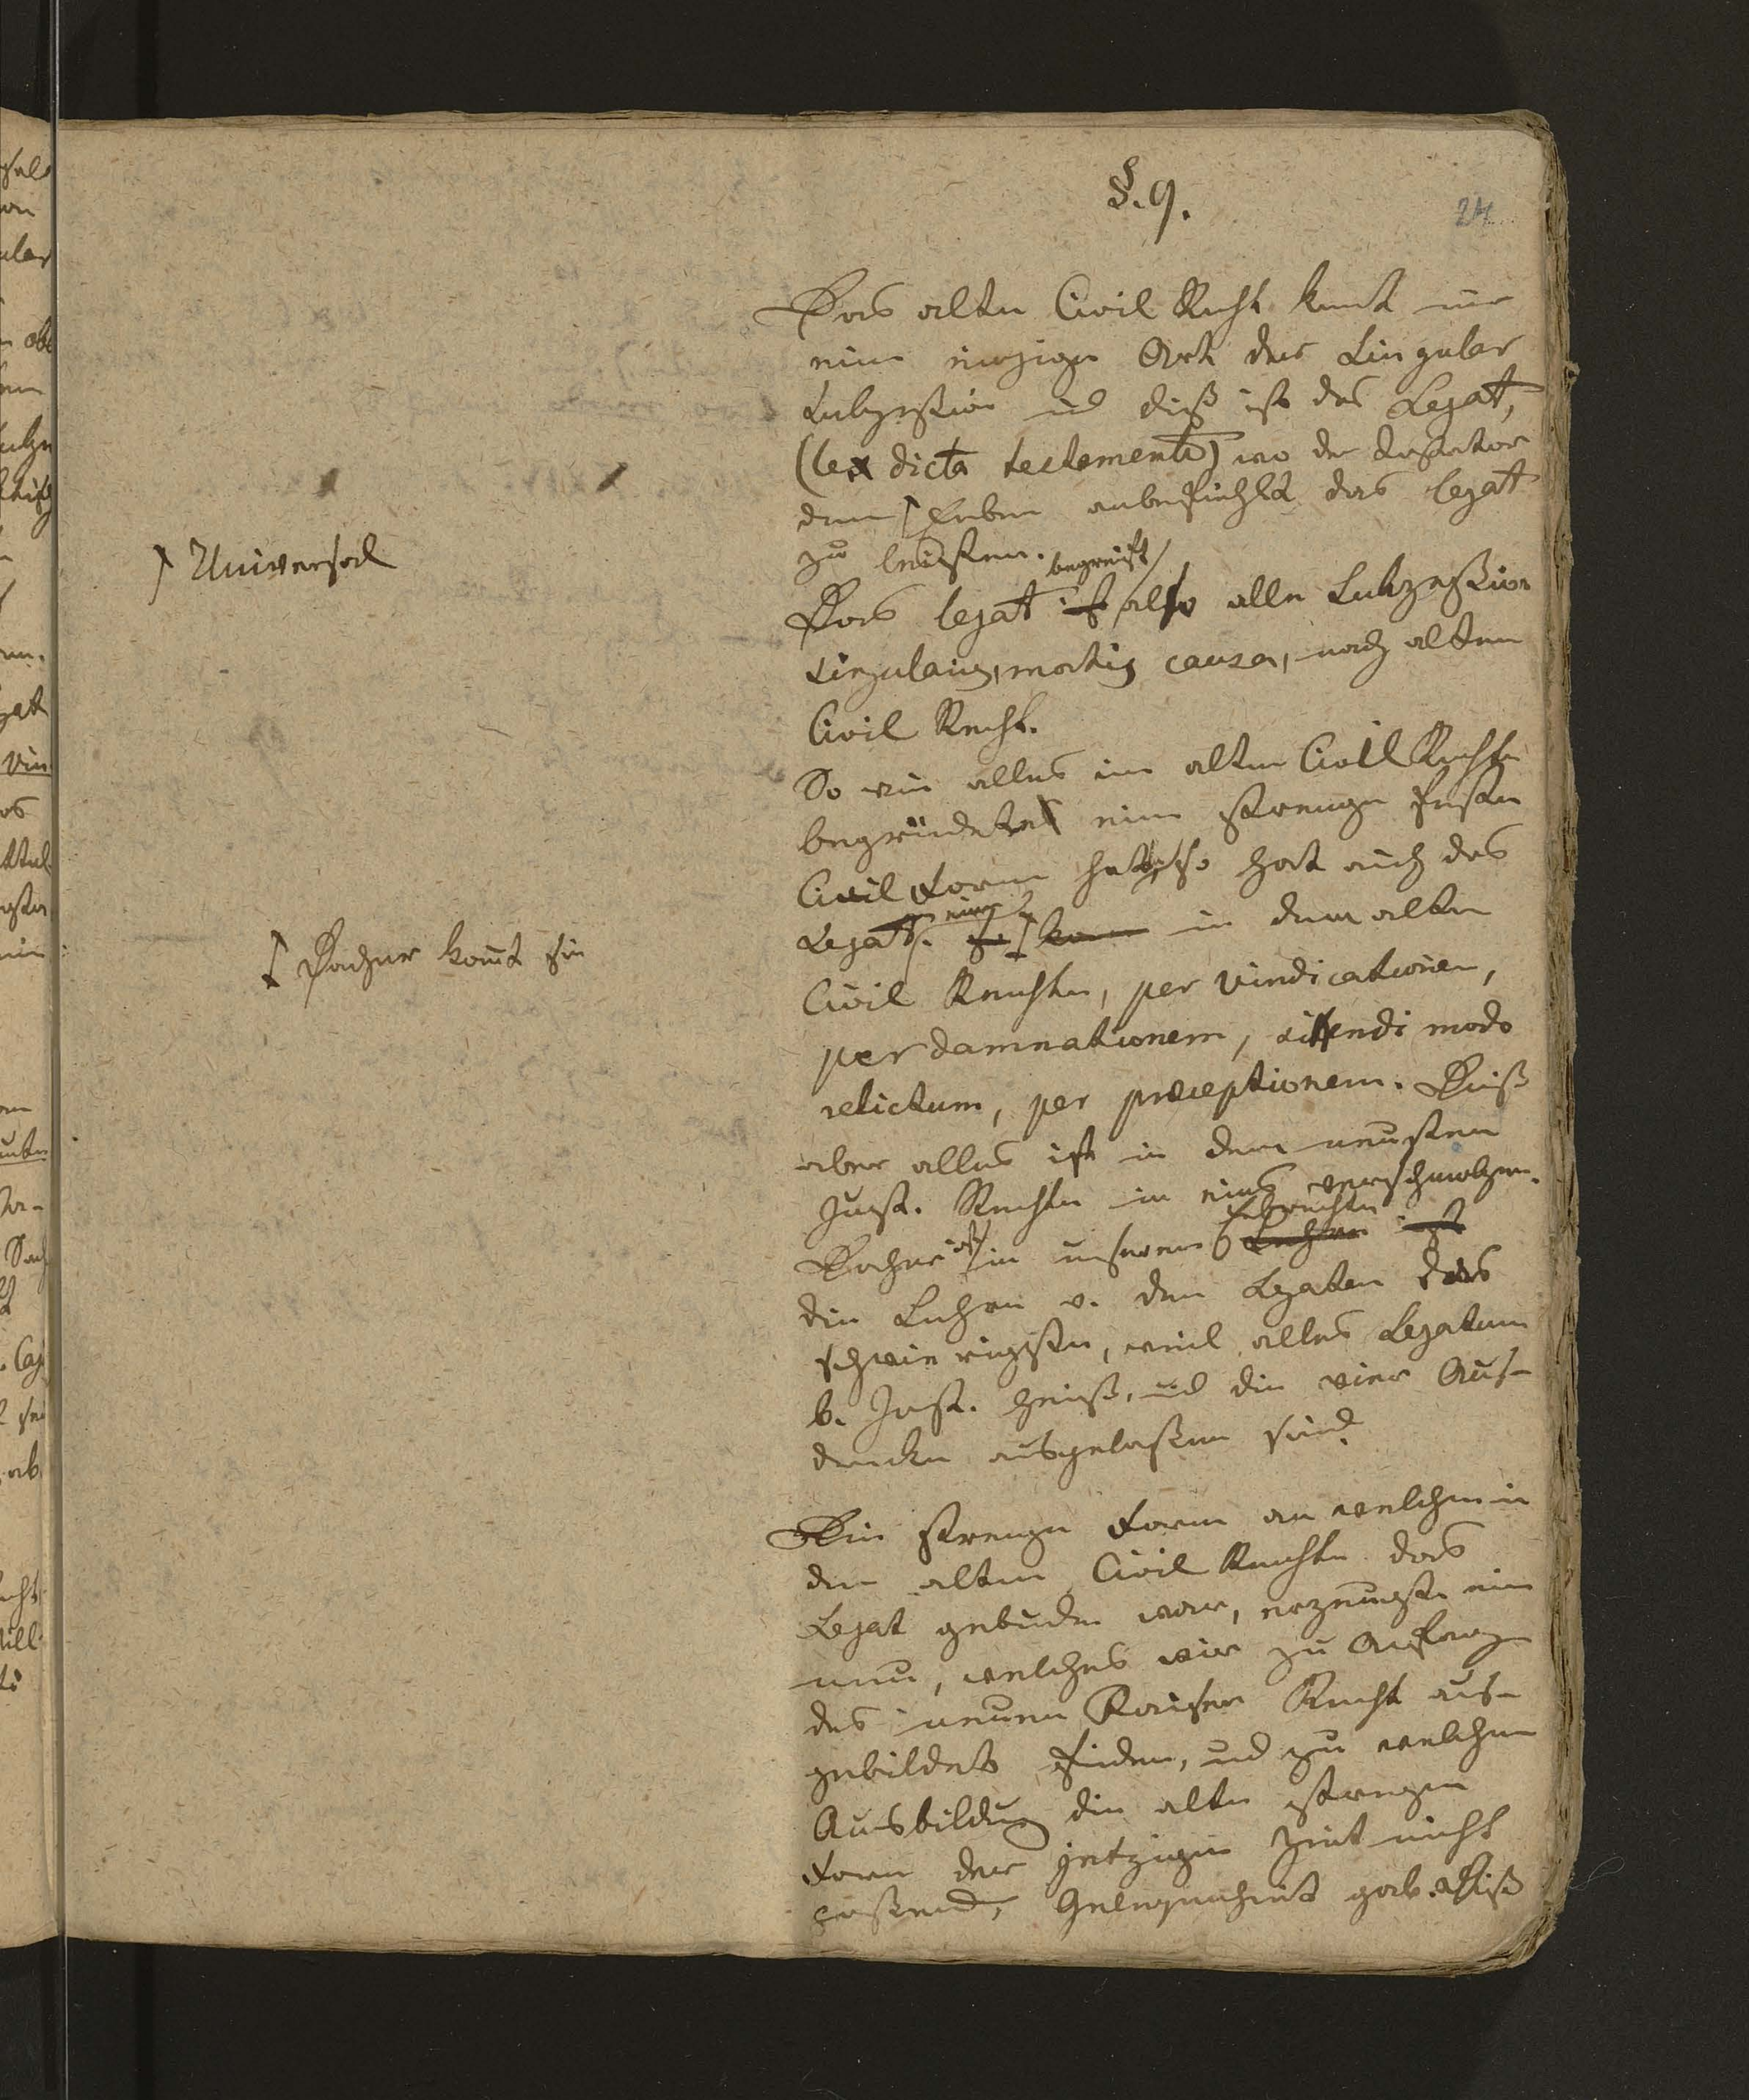 §. 9.
24
Das alte Civil Recht kent nur
eine einzige Art der Singular
Sukzession und dieß ist das Legat,
(lex dicta testamento) wo der Testator
dem Erben anbefiehlt das legat
zu leisten.
Universal
begreift
Das legat ist also alle Sukzession
singularis, mortis causa, nach altem
Civil Recht.
So wie alles im alten Civil Rechte
begründete eine strenge feste
Civil Form hatte, so hat auch das
Legat eine in dem alten
Daher kommt sie
Civil Rechte, per vindicationem,
per damnationem, sinendi modo
relictum, per præceptionem. Dieß
aber alles ist in dem neusten
Just. Rechte in eins verschmolzen.
Erbrechte
Daher ist in unserem Lehre ist
die Lehre v. den Legaten das
schwierigste, weil alles Legatum
b. Just. heißt, und die vier Aus-
drucke ausgelaßen sind.
Die strenge Form an welche in
dem alten Civil Rechte das
Legat gebunden war, erzeugte ein
neu, welches wir zu Anfang
des neuen Kaiser Recht aus-
gebildet finden, und zu welchen
Ausbildung die alte strenge
Form der jetzigen Zeit nicht
passend, Gelegenheit gab. Dieß